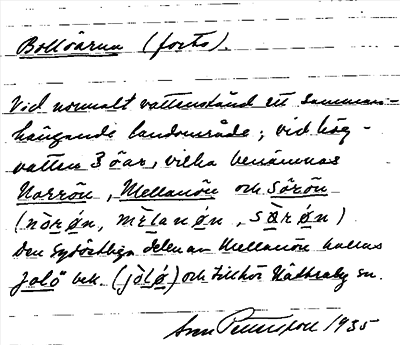 Bollöarna (forts).
Vid normalt vattenstånd ett samman-
hängande landområde; vid hög-
vatten 3 öar, vilka benämnas
Norrön, Mellanön och Sörön
(nòrøn, mèlanøn, sørøn)
Den sydöstliga delen av Mellanön kallas
Jolö bek. (jòlø) och tillhör Nättraby sn.
1935